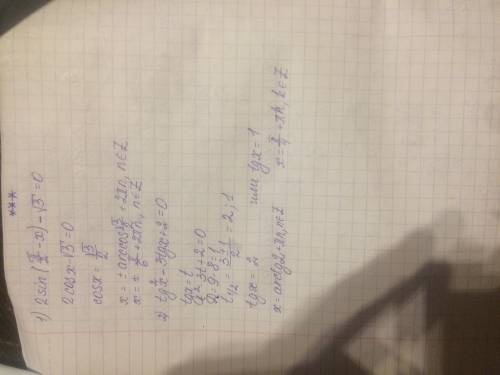 ***
1) 2sin(π/2 - x) - √3 = 0
2cosx - √3 = 0
cosx = √3/2
x = ± arccos √3/2 + 2πn, n∈Z
x = ± π/6 + 2πn, n∈Z
2) tg²x - 3tgx + 2 = 0
tgx = t
t² - 3t + 2 = 0
D = 9 - 8 = 1
t₁,₂ = (3 ± 1)/2 = 2; 1
tgx = 2 или tgx = 1
x = arctg2 + πn, n∈Z x = π/4 + πk, k∈Z